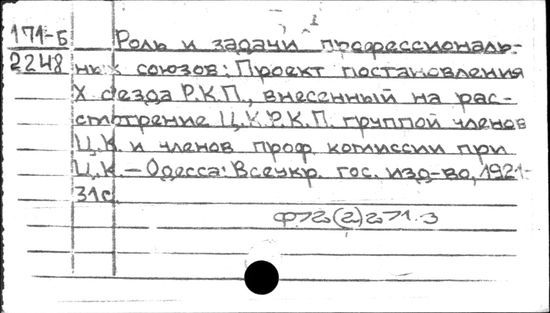 171-Б
2248
Роль и задачи профессиональ-
ных союзов: Проект постановления
X с'езда Р.К.П., внесенный на рас-
смотрение Ц.К.Р.К.П. группой членов
Ц.К. и членов проф. комиссии при
Ц.К. – Одесса: Всеукр. гос. изд-во, 1921-
31с.
Ф72(2)271.3